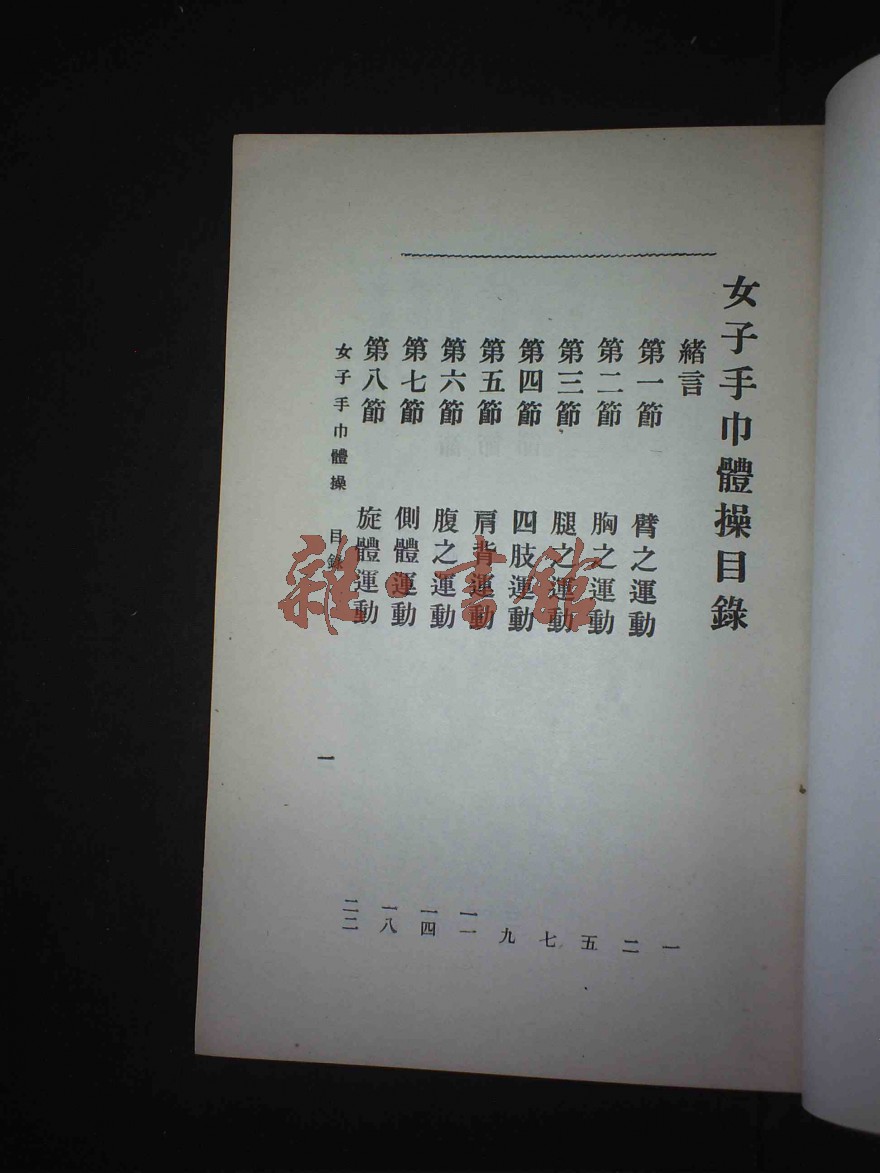 女子手巾體操目錄
緒言 一
第一節 臂之運動 二
第二節 胸之運動 五
第三節 腿之運動 七
第四節 四肢運動 九
第五節 肩背運動 一一
第六節 腹之運動 一四
第七節 側體運動 一八
第八節 旋體運動 二二
女子手巾體操 目錄 一
雜·書館